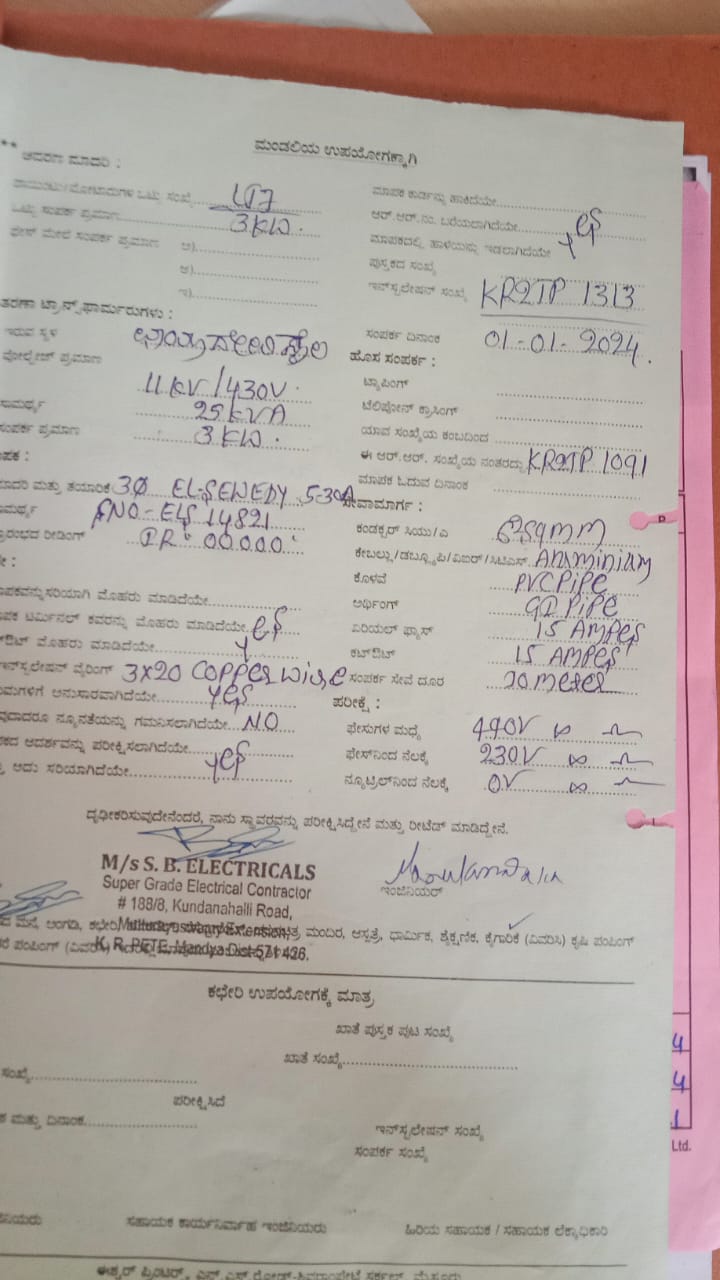 ಮಂಡಲಿಯ ಉಪಯೋಗಕ್ಕಾಗಿ
** ಆವರಣ ಮಾದರಿ :
ಒಟ್ಟು ಸಂಖ್ಯೆ
ಒಟ್ಟು ಸಂಪರ್ಕ ಪ್ರಮಾಣ 3KW.
ಫೇಸ್ ಮೇಲೆ ಸಂಪರ್ಕ ಪ್ರಮಾಣ ಅ)
ಆ)
ಇ)
ತರಣಾ ಟ್ರಾನ್ಸ್‌ಫಾರ್ಮರುಗಳು :
ಇರುವ ಸ್ಥಳ
ವೋಲ್ಟೇಜ್ ಪ್ರಮಾಣ 11KV/430V.
ಸಾಮರ್ಥ್ಯ 25KVA
ಸಂಪರ್ಕ ಪ್ರಮಾಣ 3KW.
ಪಕ :
ಮಾದರಿ ಮತ್ತು ತಯಾರಿಕೆ 3Ø EL-SEWEDY 5-30A
ಸಾಮರ್ಥ್ಯ SNO-ELS 14821
ಪ್ರಾರಂಭದ ರೀಡಿಂಗ್ IR 00000
ಪಕವನ್ನು ಸರಿಯಾಗಿ ಮೊಹರು ಮಾಡಿದೆಯೇ
ಪಕ ಟರ್ಮಿನಲ್ ಕವರನ್ನು ಮೊಹರು ಮಾಡಿದೆಯೇ yes
ಔಟ್ ಮೊಹರು ಮಾಡಿದೆಯೇ
ಇನ್‌ಸ್ಟಲೇಷನ್ ವೈರಿಂಗ್ 3X20 COPPER WIRE
ನಿಯಮಗಳಿಗೆ ಅನುಸಾರವಾಗಿದೆಯೇ yes
ವುದಾದರೂ ನ್ಯೂನತೆಯನ್ನು ಗಮನಿಸಲಾಗಿದೆಯೇ NO
ಪಕದ ಆದರ್ಶವನ್ನು ಪರೀಕ್ಷಿಸಲಾಗಿದೆಯೇ
ಆದು ಸರಿಯಾಗಿದೆಯೇ yes
ಮಾಪಕ ಕಾರ್ಡನ್ನು ಹಾಕಿದೆಯೇ
ಆರ್.ಆರ್.ನಂ. ಬರೆಯಲಾಗಿದೆಯೇ yes
ಮಾಪಕದಲ್ಲಿ ಹಾಳೆಯನ್ನು ಇಡಲಾಗಿದೆಯೇ
ಪುಸ್ತಕದ ಸಂಖ್ಯೆ
ಇನ್‌ಸ್ಟಲೇಷನ್ ಸಂಖ್ಯೆ KR2TP 1313
ಸಂಪರ್ಕ ದಿನಾಂಕ 01-01-2024.
ಹೊಸ ಸಂಪರ್ಕ :
ಟ್ಯಾಪಿಂಗ್
ಟೆಲಿಫೋನ್ ಕ್ರಾಸಿಂಗ್
ಯಾವ ಸಂಖ್ಯೆಯ ಕಂಬದಿಂದ
ಈ ಆರ್.ಆರ್. ಸಂಖ್ಯೆಯ ನಂತರದ್ದು KR2TP 1091
ಮಾಪಕ ಓದುವ ದಿನಾಂಕ
ಸೇವಾಮಾರ್ಗ :
ಕಂಡಕ್ಟರ್ ಸಿಯು/ಎ sqmm
ಕೇಬಲ್ಲು/ಡಬ್ಲ್ಯೂಪಿ/ವಿಐರ್/ಸಿಟಿಎಸ್ Anuminium
ಕೊಳವೆ PVC PIPE
ಅರ್ಥಿಂಗ್ GI PIPE
ಏರಿಯಲ್ ಫ್ಯೂಸ್ 15 AMPES
ಕಟ್‌ಔಟ್ 15 AMPES
ಸಂಪರ್ಕ ಸೇವೆ ದೂರ 20 meter
ಪರೀಕ್ಷೆ :
ಫೇಸುಗಳ ಮಧ್ಯೆ 440V ∞
ಫೇಸ್‌ನಿಂದ ನೆಲಕ್ಕೆ 230V ∞
ನ್ಯೂಟ್ರಲ್‌ನಿಂದ ನೆಲಕ್ಕೆ 0V ∞
ದೃಢೀಕರಿಸುವುದೇನೆಂದರೆ, ನಾನು ಸ್ಥಾವರವನ್ನು ಪರೀಕ್ಷಿಸಿದ್ದೇನೆ ಮತ್ತು ರೀಟೆಡ್ ಮಾಡಿದ್ದೇನೆ.
M/s S. B. ELECTRICALS
Super Grade Electrical Contractor
# 188/8, Kundanahalli Road,
Muthurayaswamy Extension,
K. R. PETE, Mandya Dist-571 426.
ಇಂಜಿನಿಯರ್
ಮನೆ, ಅಂಗಡಿ, ಕಛೇರಿ ಮಂದಿರ, ಆಸ್ಪತ್ರೆ, ಧಾರ್ಮಿಕ, ಶೈಕ್ಷಣಿಕ, ಕೈಗಾರಿಕೆ (ವಿವರಿಸಿ) ಕೃಷಿ ಪಂಪಿಂಗ್
ಪಂಪಿಂಗ್ (ವಿವರಿಸಿ)
ಕಛೇರಿ ಉಪಯೋಗಕ್ಕೆ ಮಾತ್ರ
ಖಾತೆ ಪುಸ್ತಕ ಪುಟ ಸಂಖ್ಯೆ
ಖಾತೆ ಸಂಖ್ಯೆ
ಸಂಖ್ಯೆ
ಪರೀಕ್ಷಿಸಿದೆ
ಮತ್ತು ದಿನಾಂಕ
ಇನ್‌ಸ್ಟಲೇಷನ್ ಸಂಖ್ಯೆ
ಸಂಪರ್ಕ ಸಂಖ್ಯೆ
ನಿಯರು ಸಹಾಯಕ ಕಾರ್ಯನಿರ್ವಾಹ ಇಂಜಿನಿಯರು ಹಿರಿಯ ಸಹಾಯಕ / ಸಹಾಯಕ ಲೆಕ್ಕಾಧಿಕಾರಿ
4
4
1
Ltd.